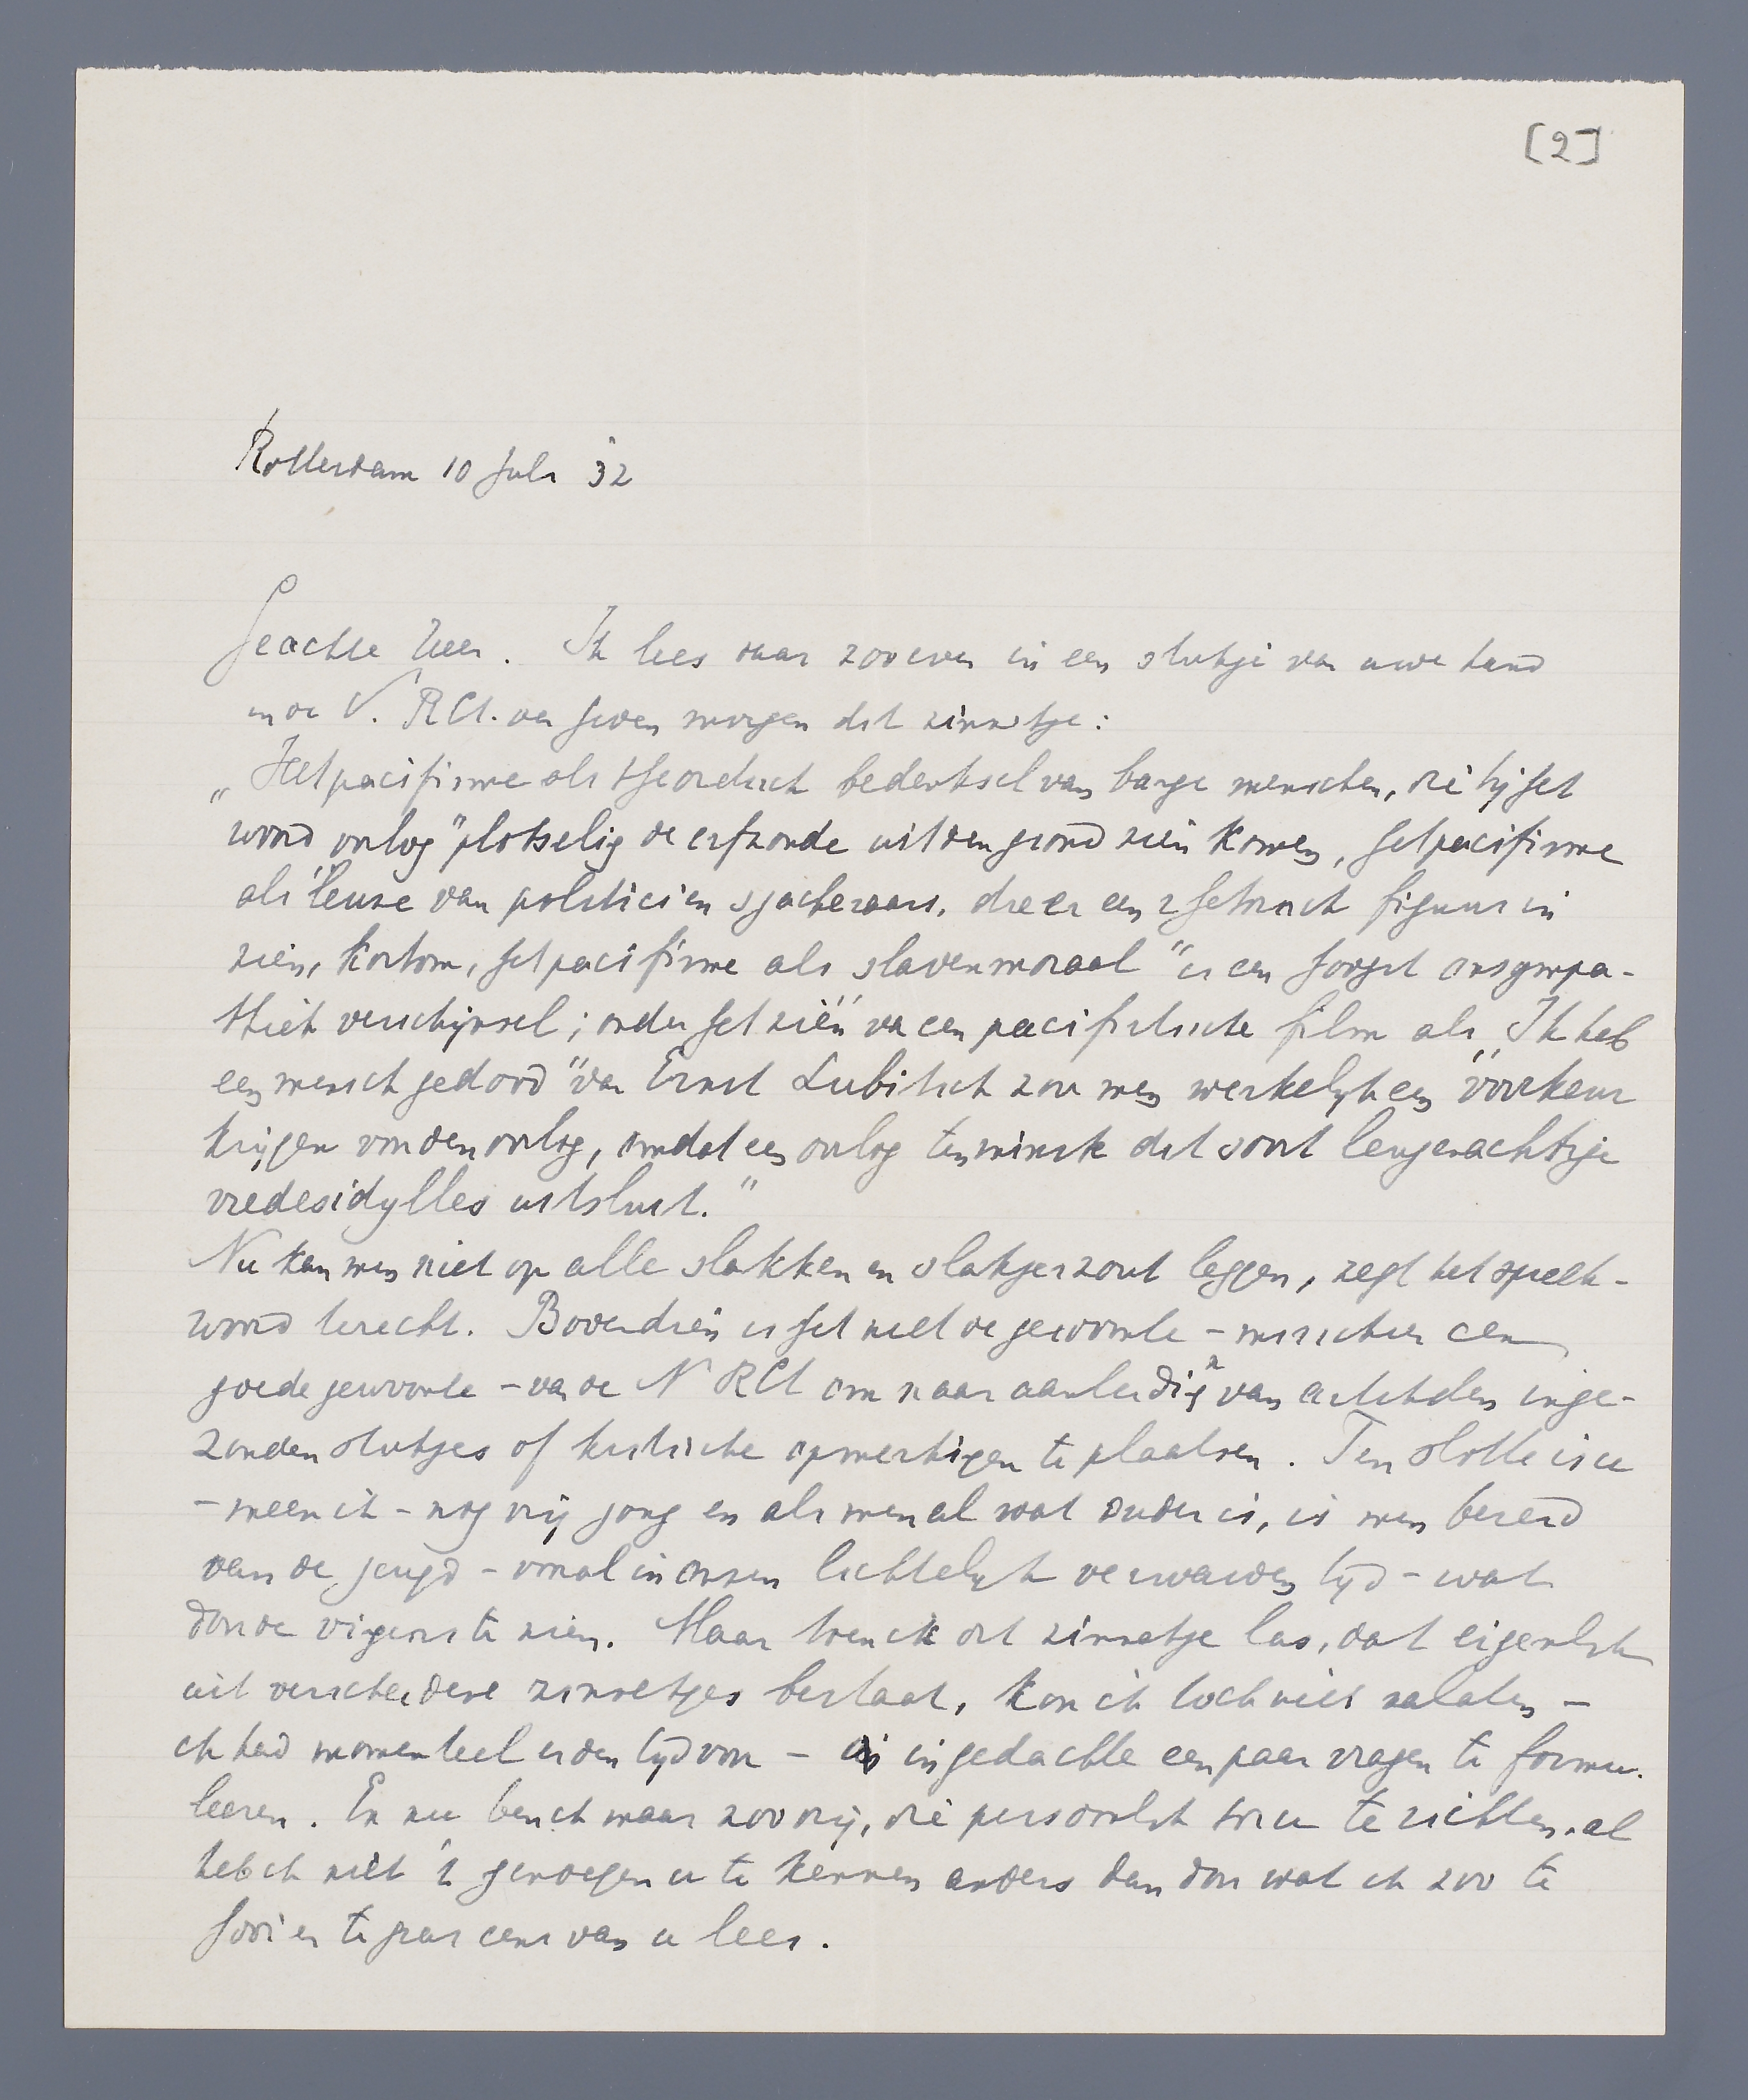 [2]
Rotterdam 10 Juli '32
Geachte Heer. Ik lees daar zooeven in een stukje van uwe hand
in de N. R Ct. van heden morgen dit zinnetje:
„Het pacifisme als theoretisch bedenksel van bange menschen, die bij het
woord oorlog" plotseling de erfzonde uit den grond zien komen, het pacifisme
als leuze van politici en sjacheraars, die er een rhetorisch figuur in
zien, kortom, het pacifisme als slavenmoraal" is een hoogst onsympa-
thiek verschijnsel; onder het zien van een pacifistische film als „Ik heb
een mensch gedood" van Ernst Lubitsch zou men werkelijk een voorkeur
krijgen voor den oorlog, omdat een oorlog tenminste dit soort leugenachtige
vredesidylles uitsluit."
Nu kan men niet op alle slakken en slakjes zout leggen, zegt het spreek-
woord terecht. Bovendien is het niet de gewoonte – misschien een
goede gewoonte – van de N R Ct om naar aanleiding van artikelen inge-
zonden stukjes of kritische opmerkingen te plaatsen. Ten slotte is u
– meen ik – nog vrij jong en als men al wat ouder is, is men bereid
van de jeugd – vooral in onzen lichtelijk verwarden tijd – wat
door de vingers te zien. Maar toen ik dit zinnetje las, dat eigenlijk
uit verscheidene zinnetjes bestaat, kon ik toch niet nalaten –
ik had momenteel er den tijd voor – in gedachte een paar vragen te formu-
leeren. En nu ben ik maar zoo vrij, die persoonlijk tot u te richten, al
heb ik niet 't genoegen u te kennen anders dan door wat ik zoo te
hooi en te gras eens van u lees.